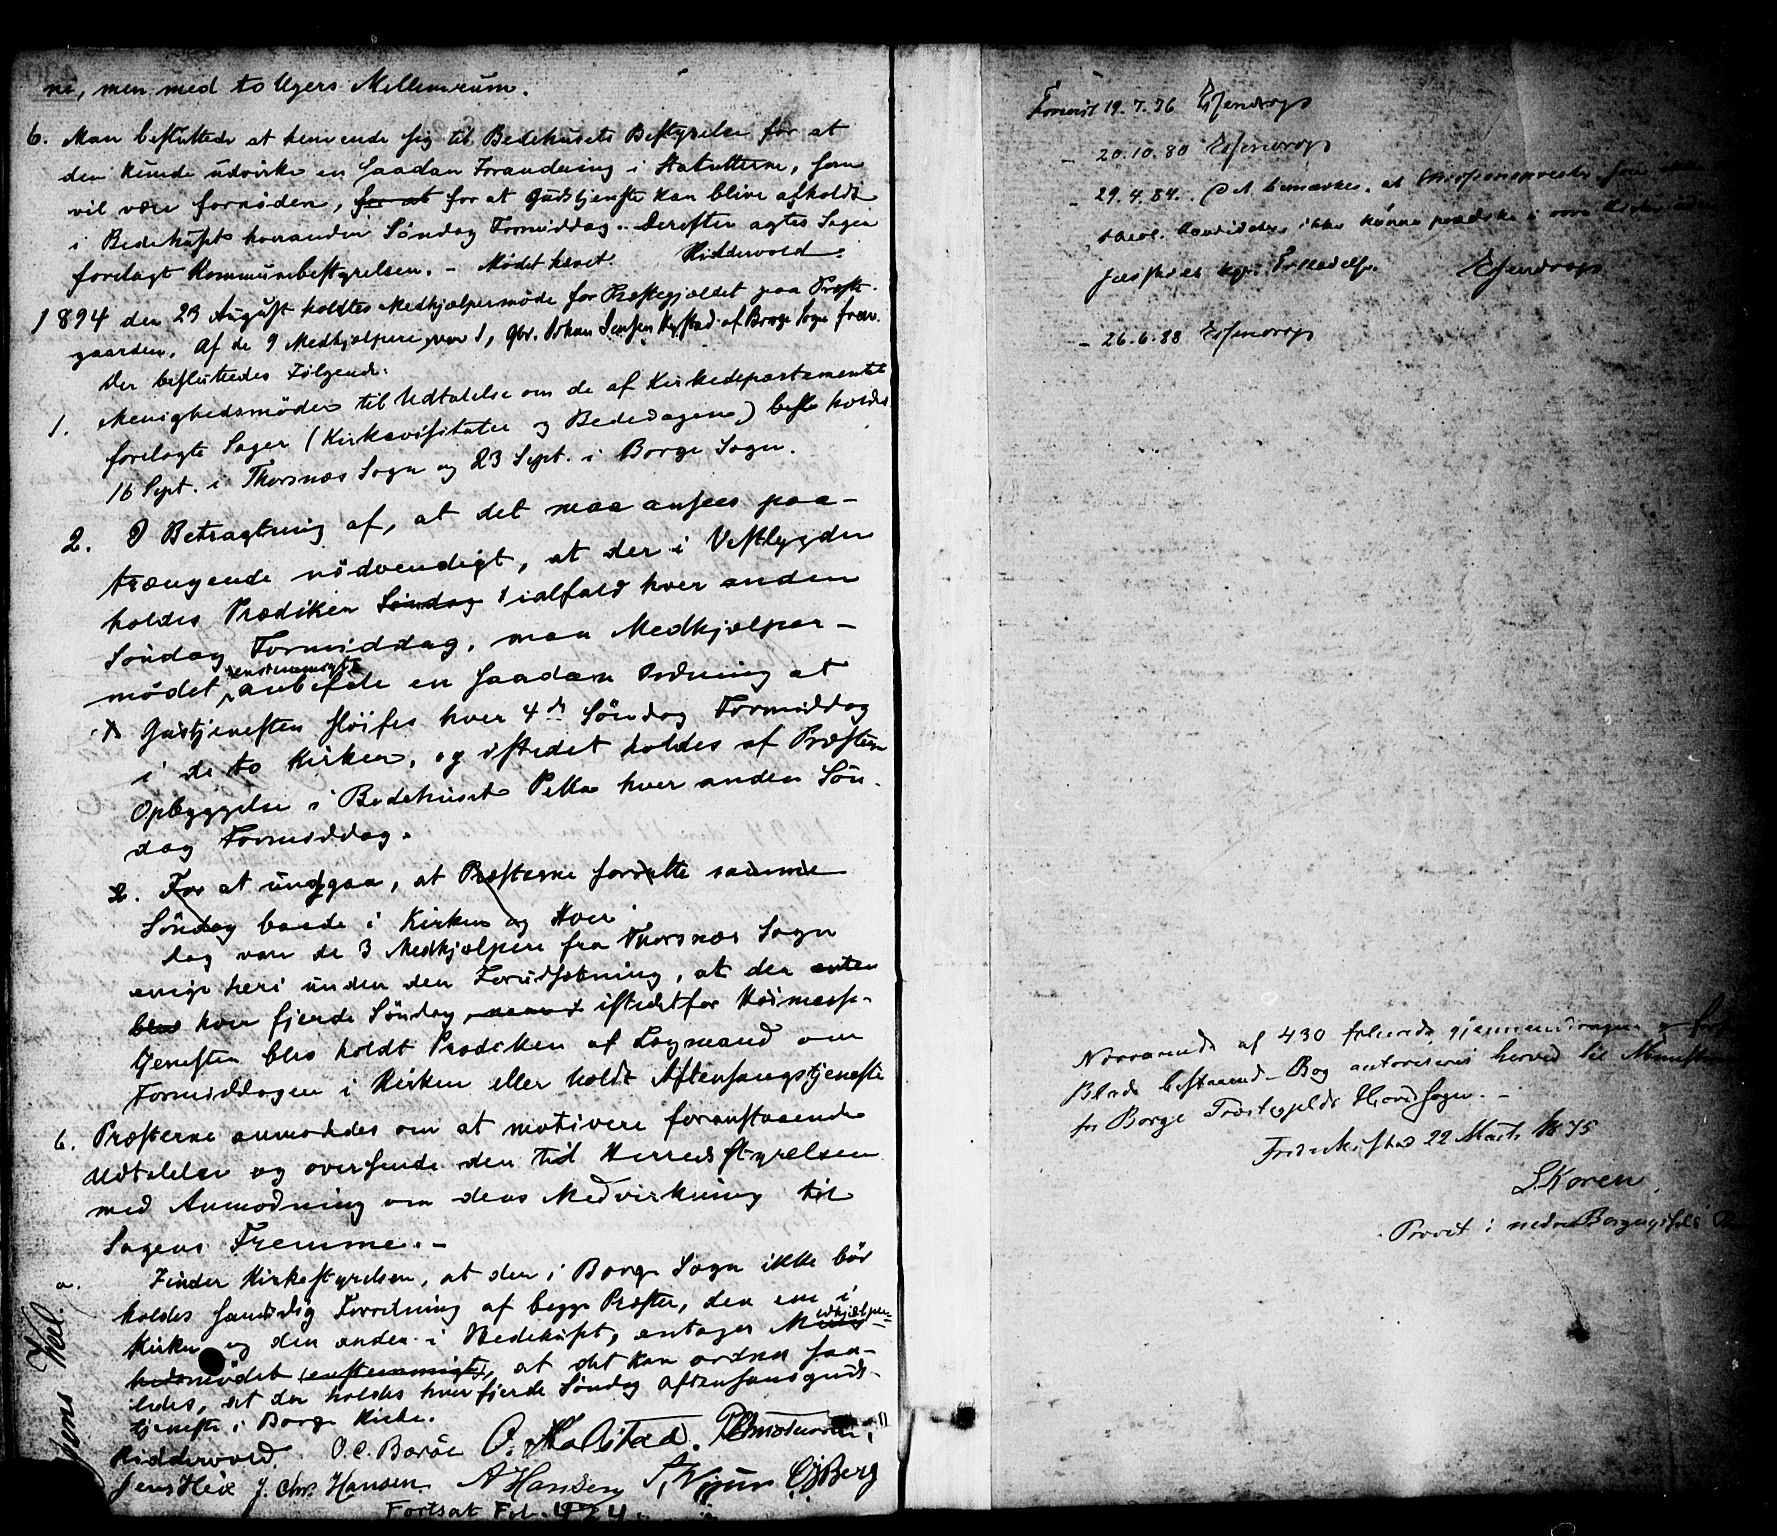 ne, men med to Ugers Mellemrum.
6. Man besluttede at henvende sig til Bedehusets Bestyrelse for at
den kunde udvirke en saadan Forandring i Statutterne, som
vil være fornøden, for at for at Gudstjeneste kan blive afholdt
i Bedehuset hveranden Søndag Formiddag. Derefter agtes Sagen
forelagt Kommunebestyrelsen. – Mødet hævet. Ridderwold.
1894 den 23 August holdtes Medhjælpermøde for Præstegjældet paa Præste-
gaarden. Af de 9 Medhjælpere var 1, Gbr. Johan Jensen af Borge Sogn frav.
Der besluttedes Følgende:
1. Menighedsmøder til Udtalelse om de af Kirkedepartementet
forelagte Sager (Kirkevisitater og Bededagen) besl. holdt
16 Sept. i Thorsnæs Sogn og 23 Sept. i Borge Sogn.
2. I Betragtning af, at det maa ansees paa-
trængende nødvendigt, at der i Vestbygden
holdes Prædiken Søndag ialfald hver anden
Søndag Formiddag, maa Medhjælper-
mødet enstemmigt anbefale en saadan Ordning at
1) Gudstjenesten sløifes hver 4de Søndag Formiddag
i de to Kirker, og istedet holdes af Præsten
Opbyggelse i Bedehuset Pella hver anden Søn-
dag Formiddag.
2. For at undgaa, at Præsterne forrette samme
Søndag baade i Kirken og Hver
dog vare de 3 Medhjælpere fra Thorsnæs Sogn
enige heri under den Forudsætning, at der enten
blev hver fjerde Søndag istedetfor Høimesse-
tjenesten blev holdt Prædiken af Lægmand om
Formiddagen i Kirken eller holdt Aftensangstjeneste
6. Præsterne anmodedes om at motivere foranstaaende
Udtalelse og oversende den til Herredsstyrelsen
med Anmodning om dens Medvirkning til
Sagens Fremme. –
a. Finder Kirkestyrelsen, at der i Borge Sogn ikke bør
holdes samtidig Forretning af begge Præster, den ene i
Kirken og den anden i Bedehuset, antager Medhjælper-
hedsmødet (enstemmigt), at det kan ordnes saa-
ledes, at der holdes hver fjerde Søndag Aftensangsguds-
tjeneste i Borge Kirke.
Ridderwold. O. C. Borøe O. Halstad.
Jens Hiis J. Chr. Hansen A Hansen Berg
Fortsat Fol. 424.
Forevist 19.7.76 Essendrop
– 20.10.80 Essendrop
– 29.4.84. Det bemærkes, at
theol. Candidater ikke kunne prædike i vore Kirker uden
Tilladelse. Essendrop
– 26.6.88 Essendrop
Nærværende af 430 folierede gjennemdragne og
Blade bestaaende Bog autoriseres herved til
for Borge Præstegjelds Hovedsogn. –
Fredrikstad 22 Marts 1875
L. Koren
Provst i nedre Borgesyssels